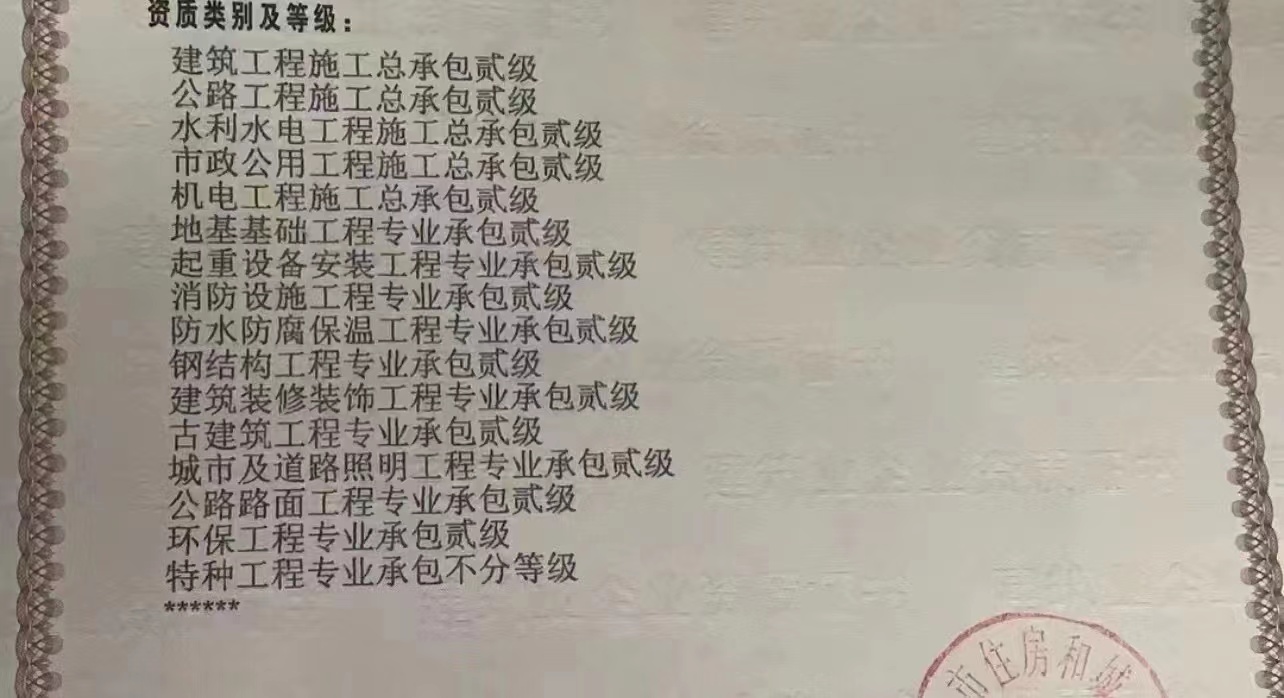 资质类别及等级：
建筑工程施工总承包贰级
公路工程施工总承包贰级
水利水电工程施工总承包贰级
市政公用工程施工总承包贰级
机电工程施工总承包贰级
地基基础工程专业承包贰级
起重设备安装工程专业承包贰级
消防设施工程专业承包贰级
防水防腐保温工程专业承包贰级
钢结构工程专业承包贰级
建筑装修装饰工程专业承包贰级
古建筑工程专业承包贰级
城市及道路照明工程专业承包贰级
公路路面工程专业承包贰级
环保工程专业承包贰级
特种工程专业承包不分等级
******
市住房和城